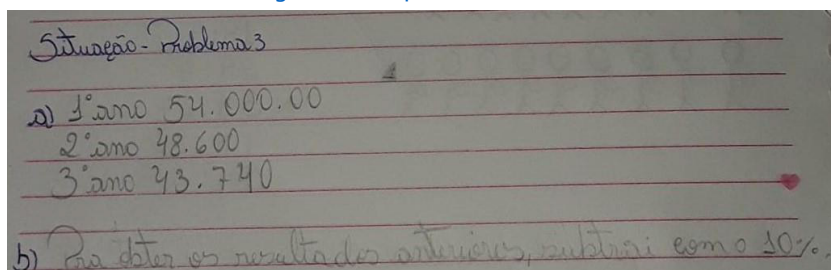 Situação-Problema 3
a) 1° ano 54.000.00
2° ano 48.600
3° ano 43.740
b) Pra obter os resultados anteriores, subtrai com o 10%